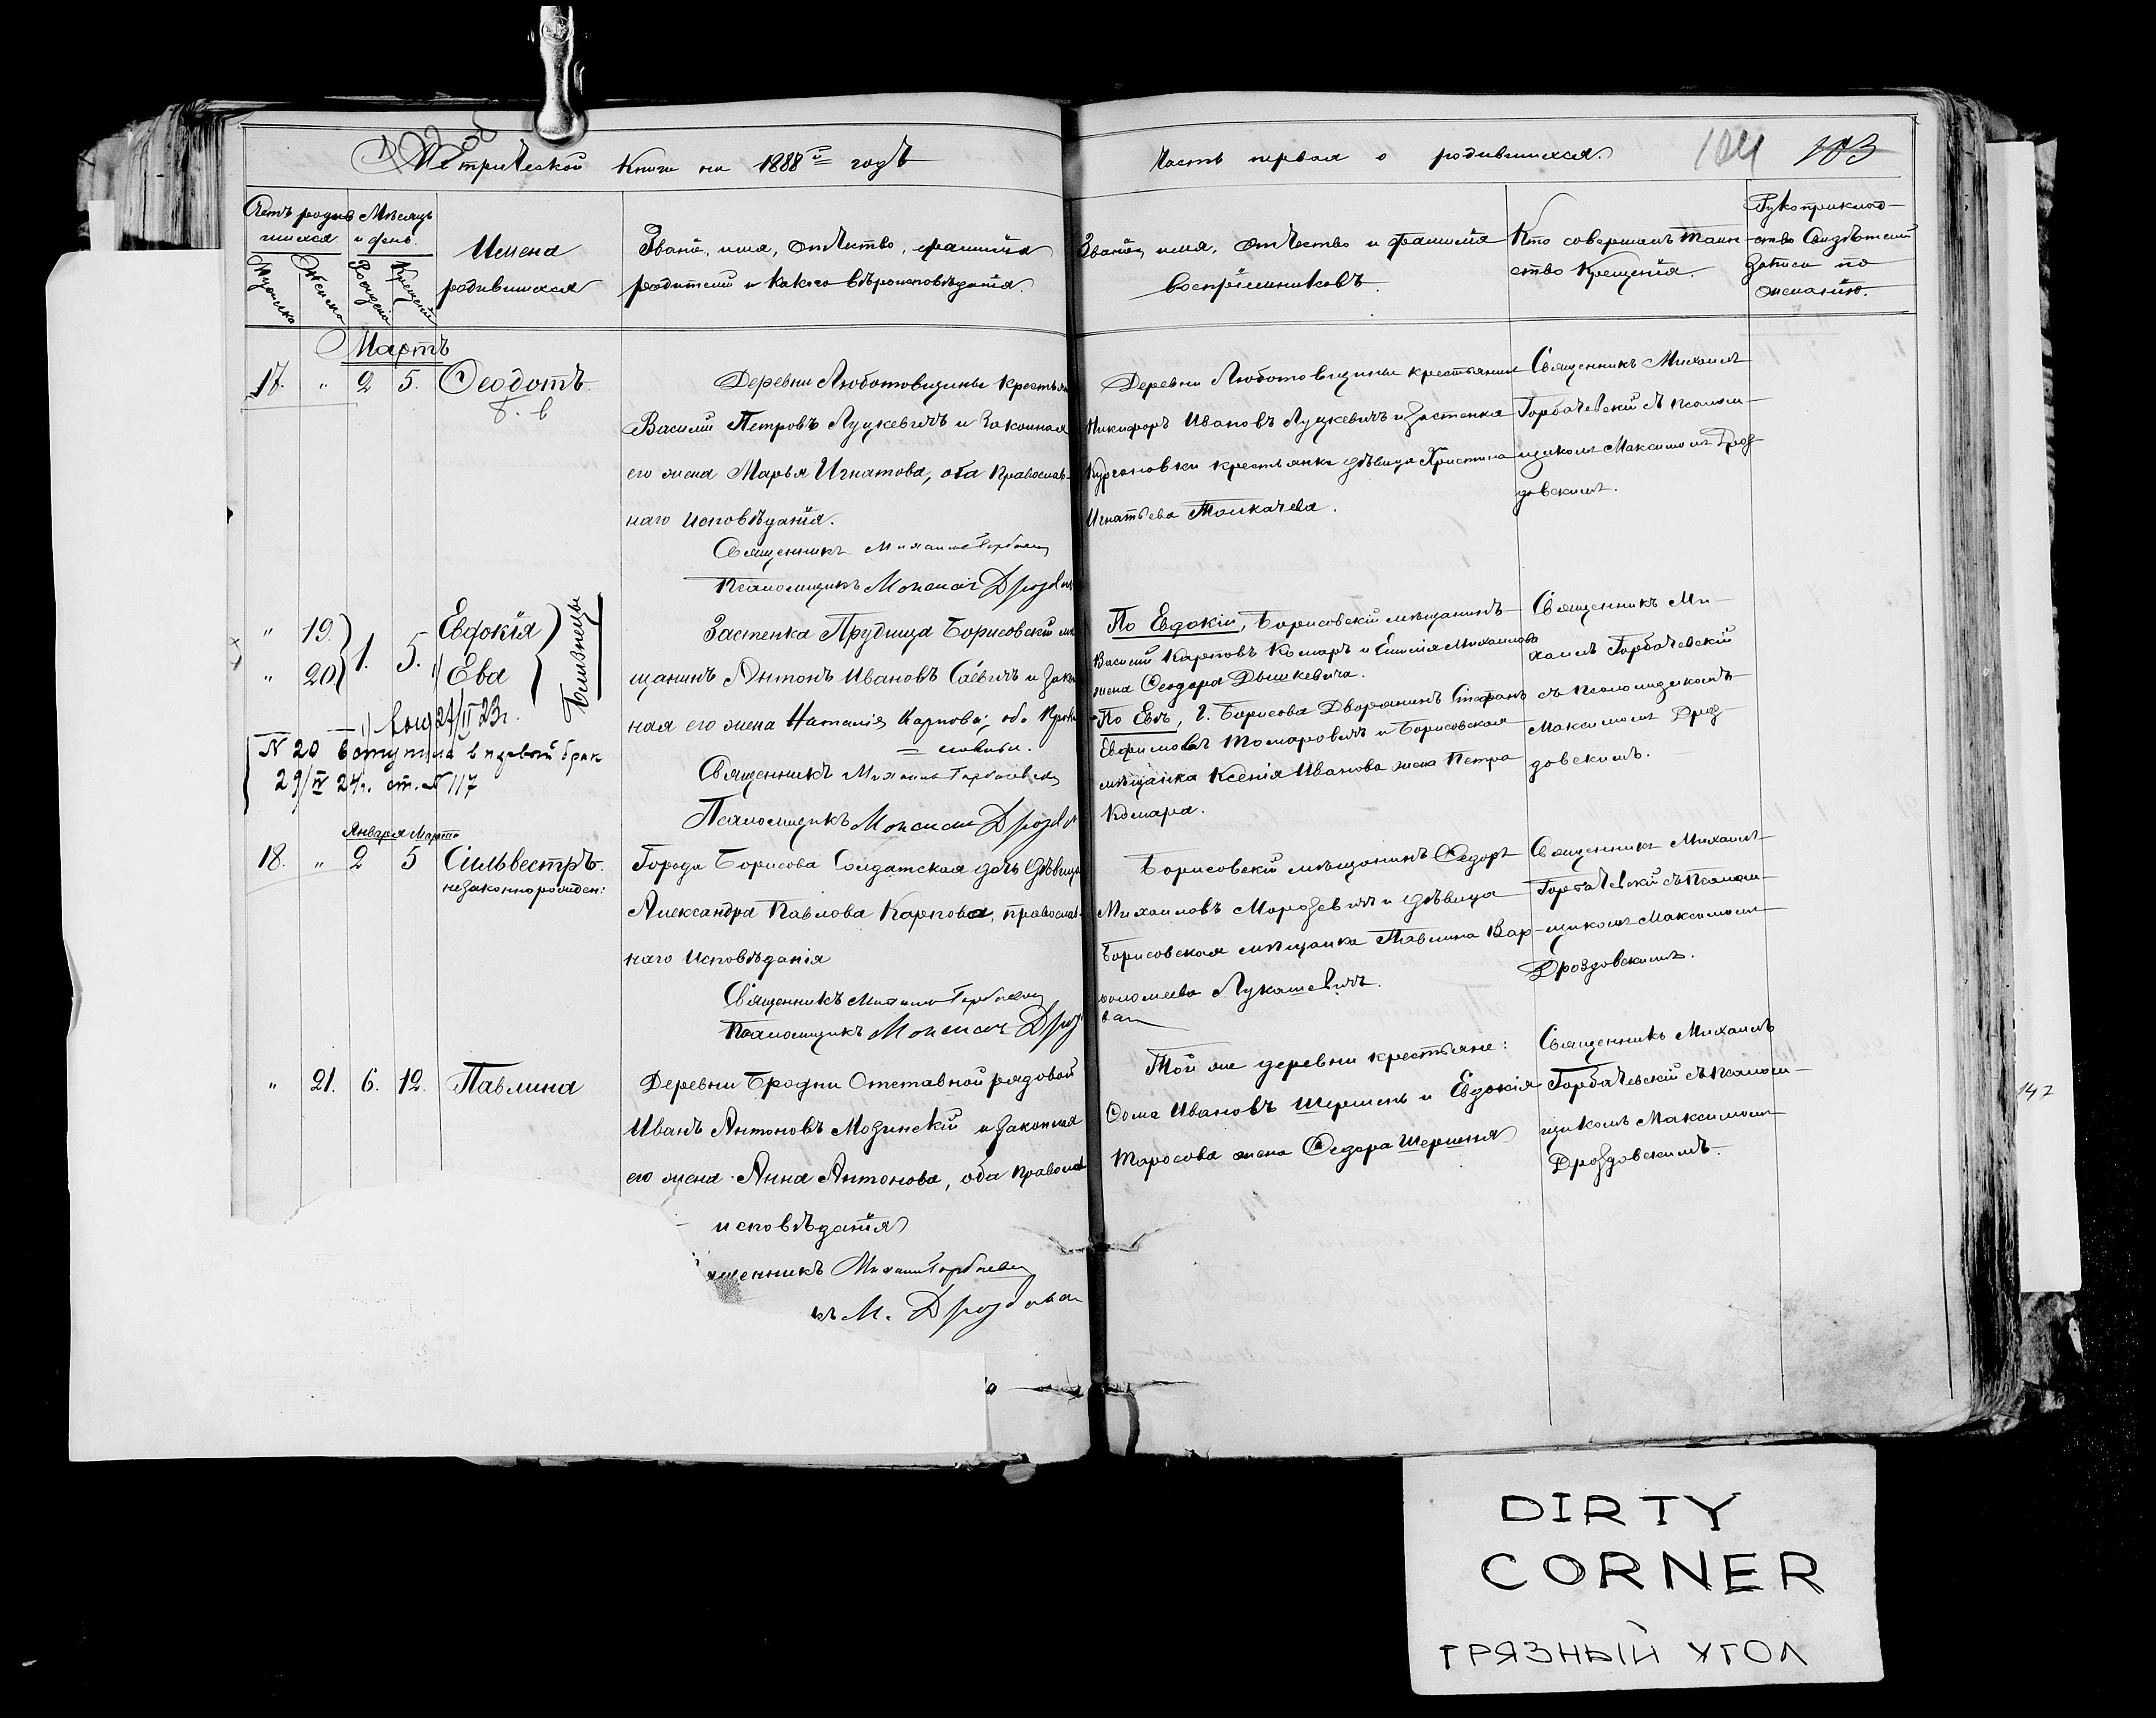 Метрической Книги на 1888й годъ
Часть первая о родившихся.
184 183
Счетъ родив-
шихся
Мѣсяцъ
и день.
Мужска
Женска
Рожденія
Крещенія
Имена
родившихся
Званіе, имя, отчество, фамилія
родителей и какого вѣроисповѣданія.
Званіе, имя, отчество и фамилія
воспріемниковъ.
Кто совершалъ Таин-
ство Крещенія.
Рукоприклад-
ство Свидѣтелей
записи по
желанію.
Мартъ
17. " 2 5. Ѳеодотъ
Деревни Люботовщины крестьян
Василій Петровъ Луцкевичъ и законная
его жена Марья Игнатова, оба Православ-
наго исповѣданія.
Священникъ Михаилъ Горбачевск
Псаломщикъ Максимъ Дроздовск
Деревни Люботовщины крестьянин
Никифоръ Ивановъ Луцкевичъ и Застенка
крестьянка дѣвица Христина
Игнатьева Толкачева.
Священникъ Михаилъ
Горбачевскій съ псалом-
щикомъ Максимомъ Дроз-
довскимъ.
" 19. 1. 5. Евдокія
" 20. Ева
Близнецы
№ 20 вступила в первый брак
29/IV 24г. ст. № 117
Застенка Прудища Борисовскій мѣ
щанинъ Антонъ Ивановъ и зако
ная его жена Наталія Карпова, оба Право
славные.
Священникъ Михаилъ Горбачевск
Псаломщикъ Максимъ Дроздов
По Евдокіи, Борисовскій мѣщанинъ
Василій Карповъ Комаръ и Михаилова
жена Ѳеодора Дышкевича.
По Евѣ, г. Борисова Дворянинъ Стефанъ
Евфимовъ Томаровичъ и Борисовская
мѣщанка Ксенія Иванова жена Петра
Комара.
Священникъ Ми-
хаилъ Горбачевскій
съ псаломщикомъ
Максимомъ Дроз-
довскимъ.
Января Марта
18. " 2 5 Сильвестръ.
незаконнорожден:
Города Борисова Солдатская дочь дѣвица
Александра Павлова Карпова, православ-
наго исповѣданія
Священникъ Михаилъ Горбачевск
Псаломщикъ Максимъ Дроз
Борисовскій мѣщанинъ Ѳедоръ
Михаиловъ Морозевичъ и дѣвица
Борисовская мѣщанка Павлина Вар-
ѳоломеева Лукашевичъ.
Священникъ Михаилъ
Горбачевскій съ Псалом-
щикомъ Максимомъ
Дроздовскимъ.
" 21. 6. 12. Павлина
Деревни Бродни Отставной рядовой
Иванъ Антоновъ Мозинскій и законная
его жена Анна Антонова, оба православ
исповѣданія
ященникъ Михаилъ Горбачевск
къ М. Дроздовск
Той же деревни крестьяне:
Ѳома Ивановъ Шершень и Евдокія
Тарасова жена Ѳедора Шершня
Священникъ Михаилъ
Горбачевскій съ псалом-
щикомъ Максимомъ
Дроздовскимъ.
147
DIRTY
CORNER
ГРЯЗНЫЙ УГОЛ